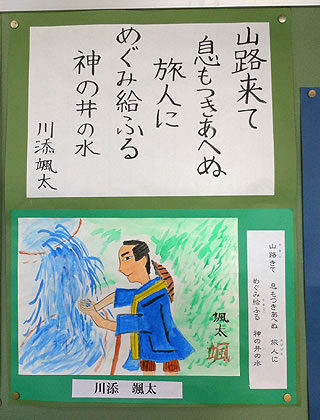 山路来て
息もつきあへぬ
旅人に
めぐみ給ふる
神の井の水
川添颯太
颯太
颯
山路きて 息もつきあへぬ 旅人に
めぐみ給ふる 神の井の水
川添 颯太